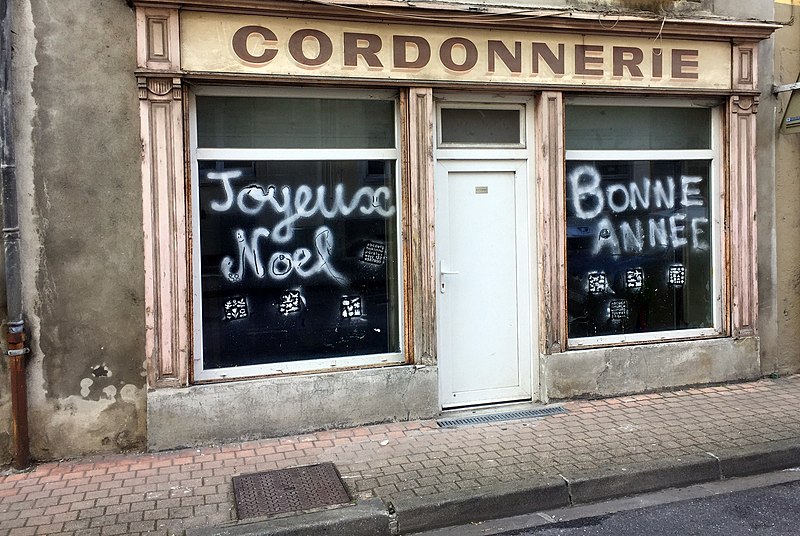 CORDONNERiE
Joyeux
Noel
BONNE
ANNEE